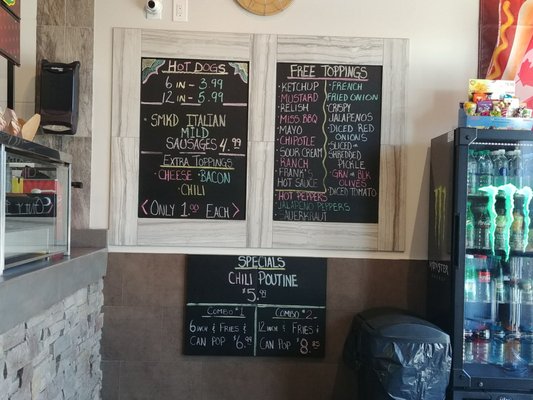 HOT DOGS
6 IN - 3.99
12 IN - 5.99
SMKD ITALIAN
MILD
SAUSAGES 4.99
EXTRA TOPPINGS
• CHEESE • BACON
• CHILI
ONLY 1.00 EACH
FREE TOPPINGS
• KETCHUP
• MUSTARD
• RELISH
• MISS BBQ
• MAYO
• CHIPOTLE
• SOUR CREAM
• RANCH
• FRANK'S
HOT SAUCE
• HOT PEPPERS
• JALAPENO PEPPERS
• SAUERKRAUT
• FRENCH
FRIED ONION
• CRISPY
JALAPENOS
• DICED RED
ONIONS
• SLICED OR
SHREDDED
PICKLE
• GRN OR BLK
OLIVES
• DICED TOMATO
SPECIALS
CHILI POUTINE
$5.99
COMBO #1
6 INCH & FRIES &
CAN POP $6.99
COMBO #2
12 INCH & FRIES &
CAN POP $8.25
MONSTER